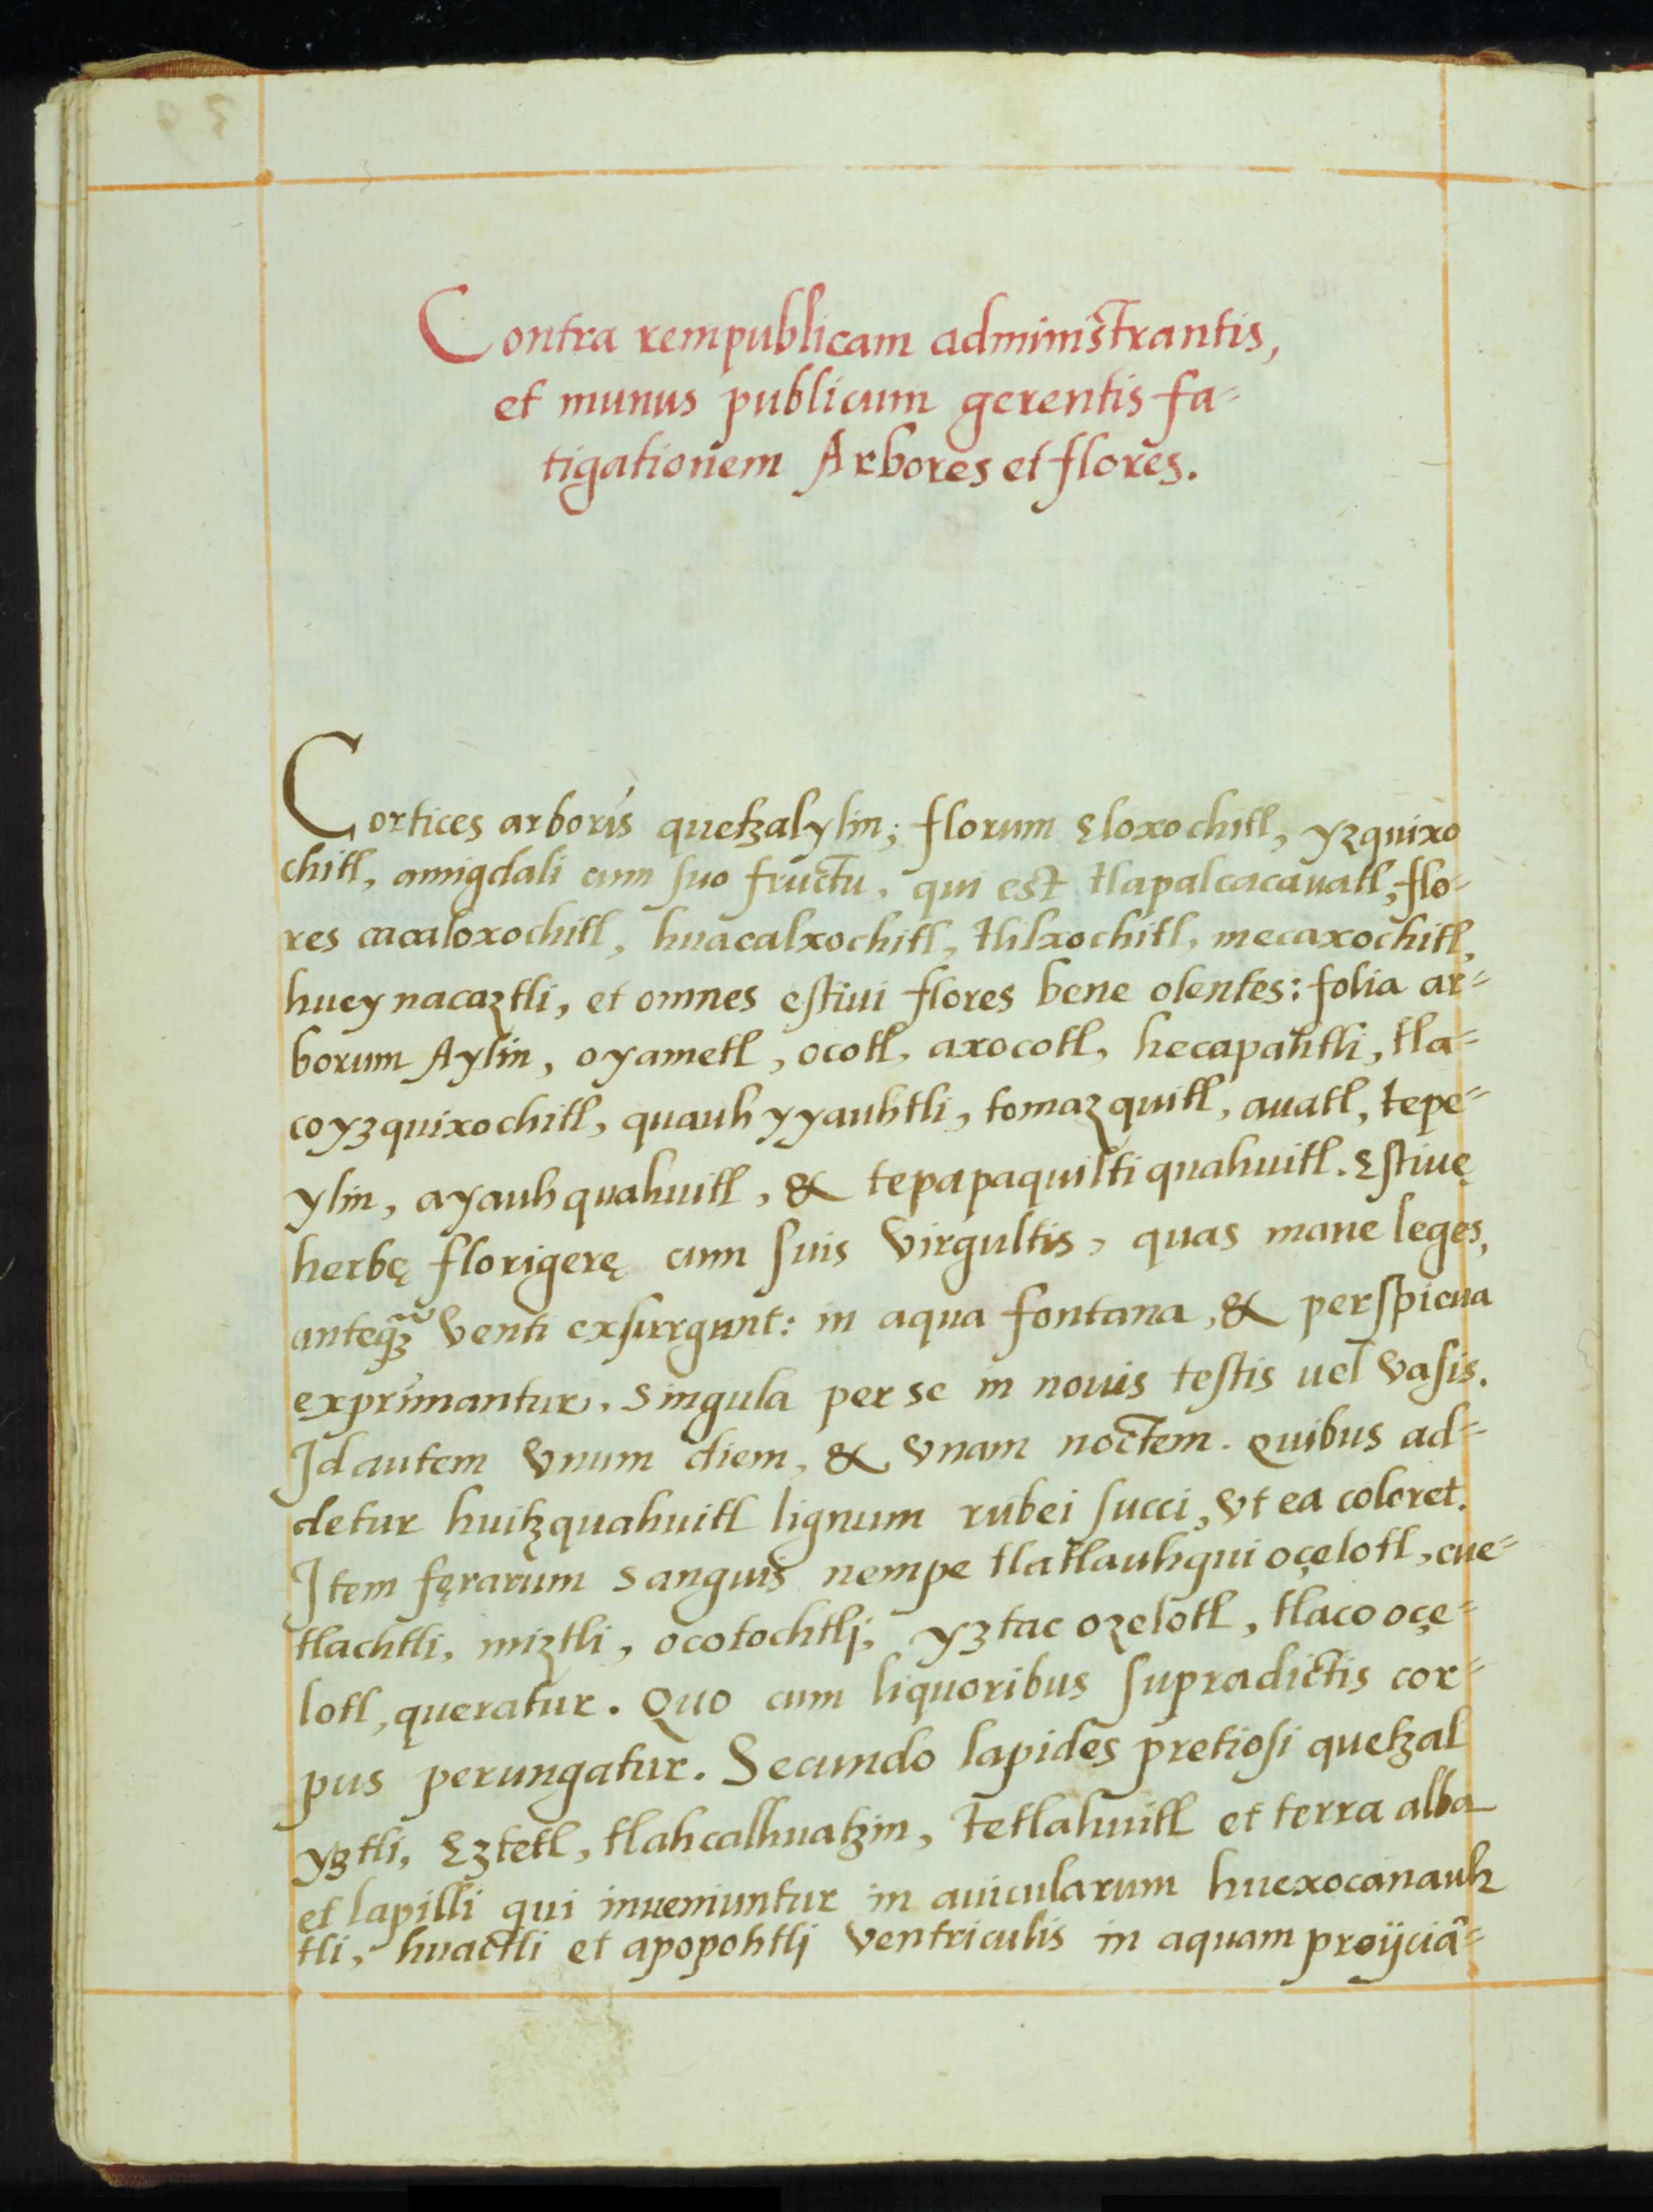 Contra rempublicam administrantis,
et munus publicum gerentis fa=
tigationem Arbores et flores.
Cortices arboris quetzalylin; florum eloxochitl, yzquixo
chitl, amigdali cum suo fructu, qui est tlapalcacauatl; flo=
res cacaloxochitl, huacalxochitl, tlilxochitl, mecaxochitl,
huey nacaztli, et omnes estiui flores bene olentes: folia ar=
borum Aylin, oyametl, ocotl, axocotl, hecapahtli, tla=
coyzquixochitl, quauh yyauhtli, tomazquitl, auatl, tepe=
ylin, ayauhquahuitl, & tepapaquilti quahuitl. Estiuę
herbę florigerę cum suis virgultis, quas mane leges,
anteq̃ venti exsurgunt: in aqua fontana, & perspicua
exprimantur. Singula per se in nouis testis uel vasis.
Id autem vnum diem, & vnam noctem. Quibus ad=
detur huitzquahuitl lignum rubei succi, vt ea coloret.
Item fęrarum sanguis nempe tlatlauhqui oçelotl, cue=
tlachtli, miztli, ocotochtlj, yztac ozelotl, tlaco oçe=
lotl, queratur. Quo cum liquoribus supradictis cor=
pus perungatur. Secundo lapides pretiosi quetzal
yztli, Eztetl, tlahcalhuatzin, tetlahuitl et terra alba
et lapilli qui inueniuntur in auicularum huexocanauh
tli, huactli et apopohtlj ventriculis in aquam proijciã=